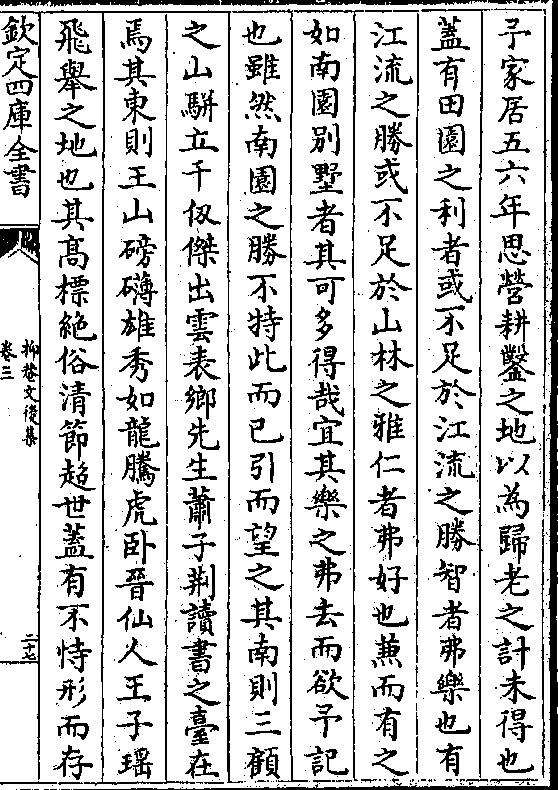 予家居五六年思營耕鑿之地以為歸老之計未得也
蓋有田園之利者或不足於江流之勝智者弗樂也有
江流之勝或不足於山林之雅仁者弗好也蕙而有之
如南園別墅者其可多得哉宜其樂之弗去而欲予記
也雖然南園之勝不特此而已引而望之其南則三顧
之山駢立千仭傑出雲表鄉先生蕭子荆讀書之臺在
焉其東則王山磅礴雄秀如龍騰虎卧晉仙人王子瑶
飛舉之地也其髙標絶俗清節超世蓋有不恃形而存
欽定四庫全書
抑菴文後集
卷三
二十七